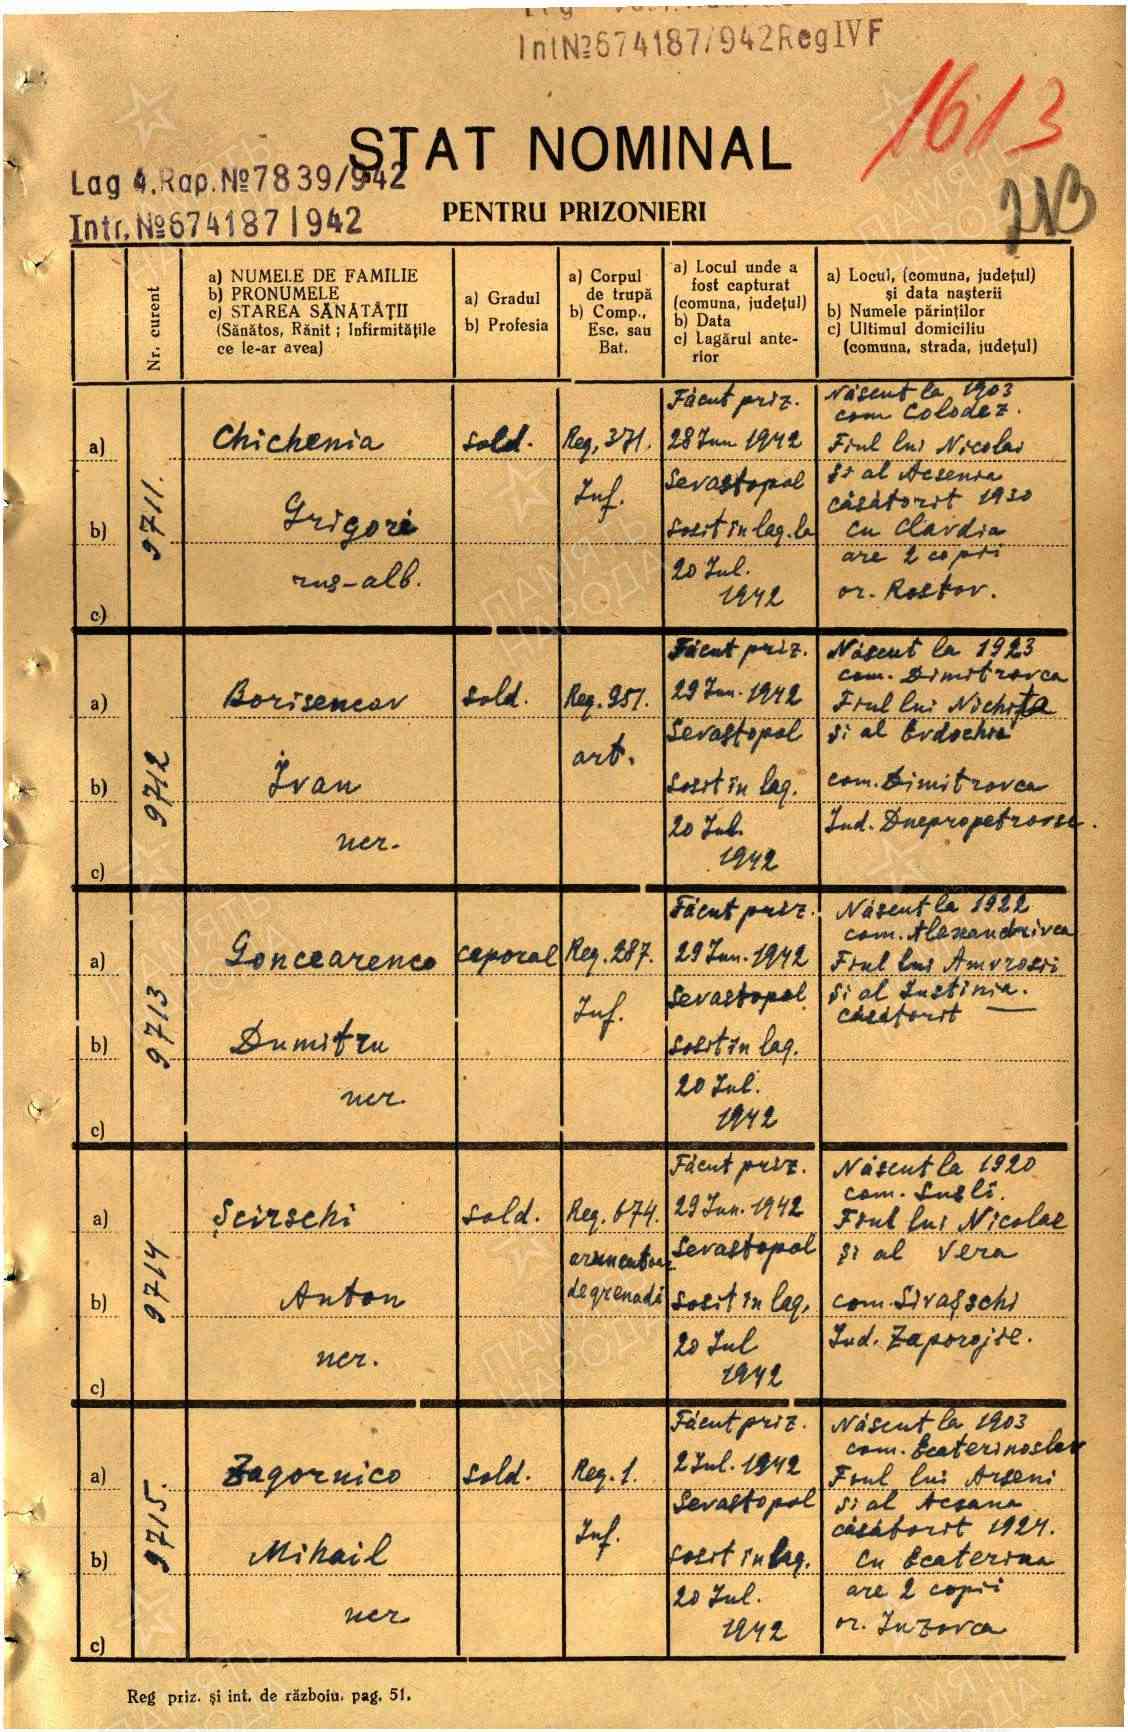 Int№674187/942RegIVF
1613
STAT NOMINAL
Lag 4.Rap.№7839/942
213
PENTRU PRIZONIERI
Intr.№674187/942
Nr. curent
a) NUMELE DE FAMILIE
b) PRONUMELE
c) STAREA SĂNĂTĂȚII
(Sănătos, Rănit ; Infirmitățile
ce le-ar avea)
a) Gradul
b) Profesia
a) Corpul
de trupă
b) Comp.,
Esc. sau
Bat.
a) Locul unde a
fost capturat
(comuna, județul)
b) Data
c) Lagărul ante-
rior
a) Locul, (comuna, județul)
și data nașterii
b) Numele părinților
c) Ultimul domiciliu
(comuna, strada, județul)
a)
b)
c)
9711.
Chichenia
Grigore
rus-alb.
sold.
Reg. 371.
Inf.
Făcut priz.
28 Iun 1942
Sevastopol
sosit în lag. la
20 Iul.
1942
Născut la 1903
com Colodez.
Fiul lui Nicolai
și al Acsenia
căsătorit 1930
cu Clavdia
are 2 copii
or. Rostov.
a)
b)
c)
9712
Borisencov
Ivan
ucr.
sold.
Reg. 951.
art.
Făcut priz.
29 Iun. 1942
Sevastopol
sosit în lag.
20 Iul.
1942
Născut la 1923
com. Dimitrovca
Fiul lui Nichita
și al Evdochia
com. Dimitrovca
Jud. Dnepropetrovsc.
a)
b)
c)
9713
Goncearenco
Dumitru
ucr.
caporal
Reg. 287.
Inf.
Făcut priz.
29 Iun. 1942
Sevastopol
sosit în lag.
20 Iul.
1942
Născut la 1922
com. Alexandrivca
Fiul lui Amvrosii
și al Iustinia.
căsătorit —
a)
b)
c)
9714
Șcirschi
Anton
ucr.
sold.
Reg. 674.
aruncator
de grenadi
Făcut priz.
29 Iun. 1942
Sevastopol
sosit în lag.
20 Iul
1942
Născut la 1920
com. Susli.
Fiul lui Nicolae
și al Vera
com. Sivașschi
Jud. Zaporojie.
a)
b)
c)
9715.
Zagornico
Mihail
ucr
sold.
Reg. 1.
Inf.
Făcut priz.
2 Iul. 1942
Sevastopol
sosit în lag.
20 Iul.
1942
Născut la 1903
com. Ecaterinoslav
Fiul lui Arseni
și al Acsana
căsătorit 1927.
cu Ecaterina
are 2 copii
or. Iuzovca
Reg priz. și int. de războiu. pag. 51.
ПАМЯТЬ
НАРОДА